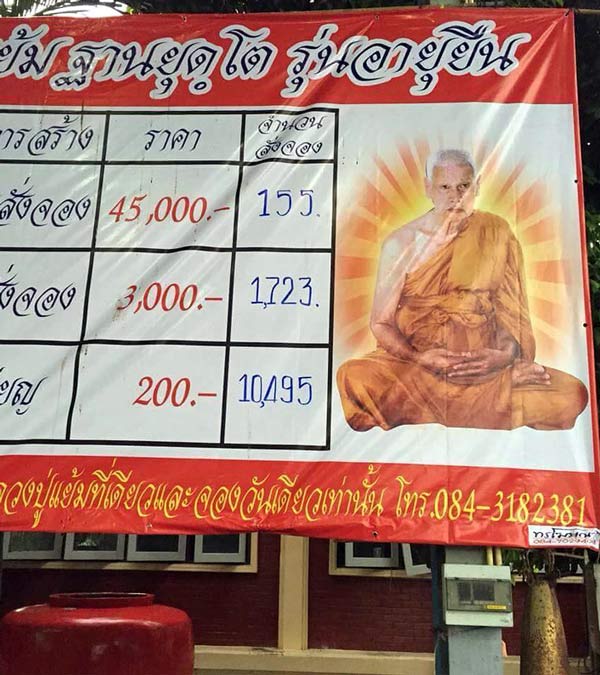 ย้ม ฐานยุตฺโต รุ่นอายุยืน
การสร้าง ราคา จำนวน
สั่งจอง
สั่งจอง 45,000.- 155.
สั่งจอง 3,000.- 1,723.
200.- 10,495
หลวงปู่แย้มที่เดียวและจองวันเดียวเท่านั้น โทร.084-3182381